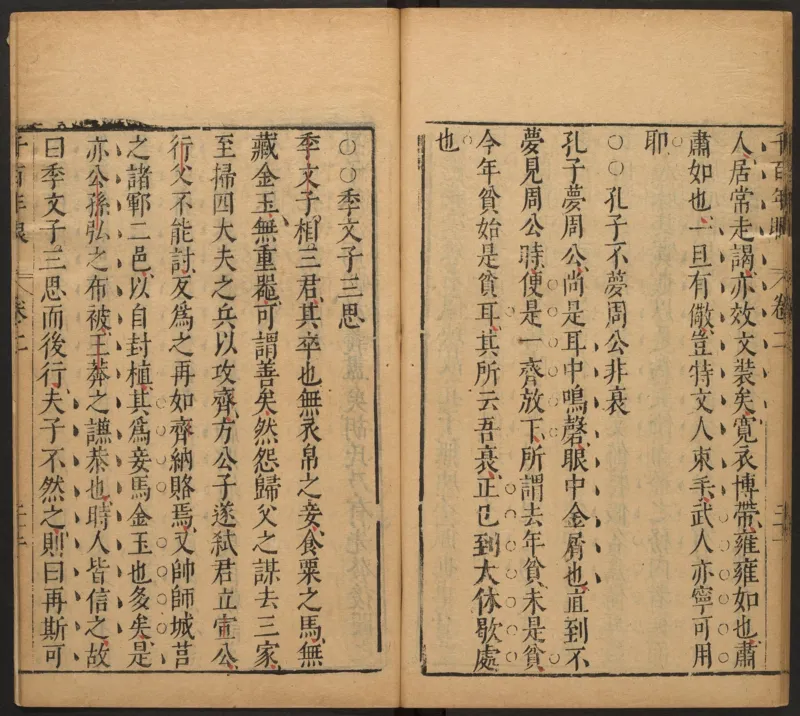 千百年眼 卷二
人居常走謁亦效文裝矣寬衣博帶雍雍如也肅
肅如也一旦有儆豈特文人束手武人亦寧可用
耶
○○孔子不夢周公非衰
孔子夢周公尚是耳中鳴磬眼中金屑也直到不
夢見周公時便是一齊放下所謂去年貧未是貧
今年貧始是貧耳其所云吾衰正已到大休歇處
也
○○季文子三思
季文子相三君其卒也無衣帛之妾食粟之馬無
藏金玉無重器可謂善矣然怨歸父之謀去三家
至掃四大夫之兵以攻齊方公子遂弑君立宣公
行父不能討反爲之再如齊納賂焉又帥師城莒
之諸鄆二邑以自封植其爲妾馬金玉也多矣是
亦公孫弘之布被王莽之謙恭也時人皆信之故
曰季文子三思而後行夫子不然之則曰再斯可
千百年眼 卷二